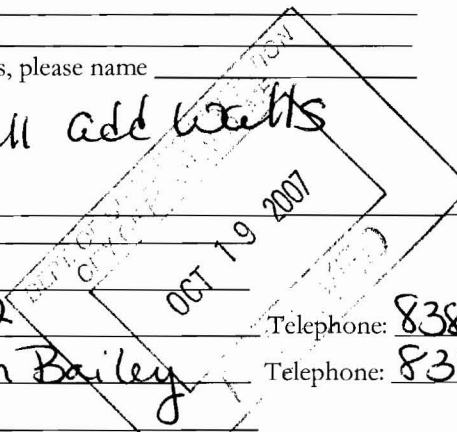 s, please name
ll add walls
DEPT. OF
CITY OF
OCT 19 2007
Telephone: 838
n Bailey Telephone: 83